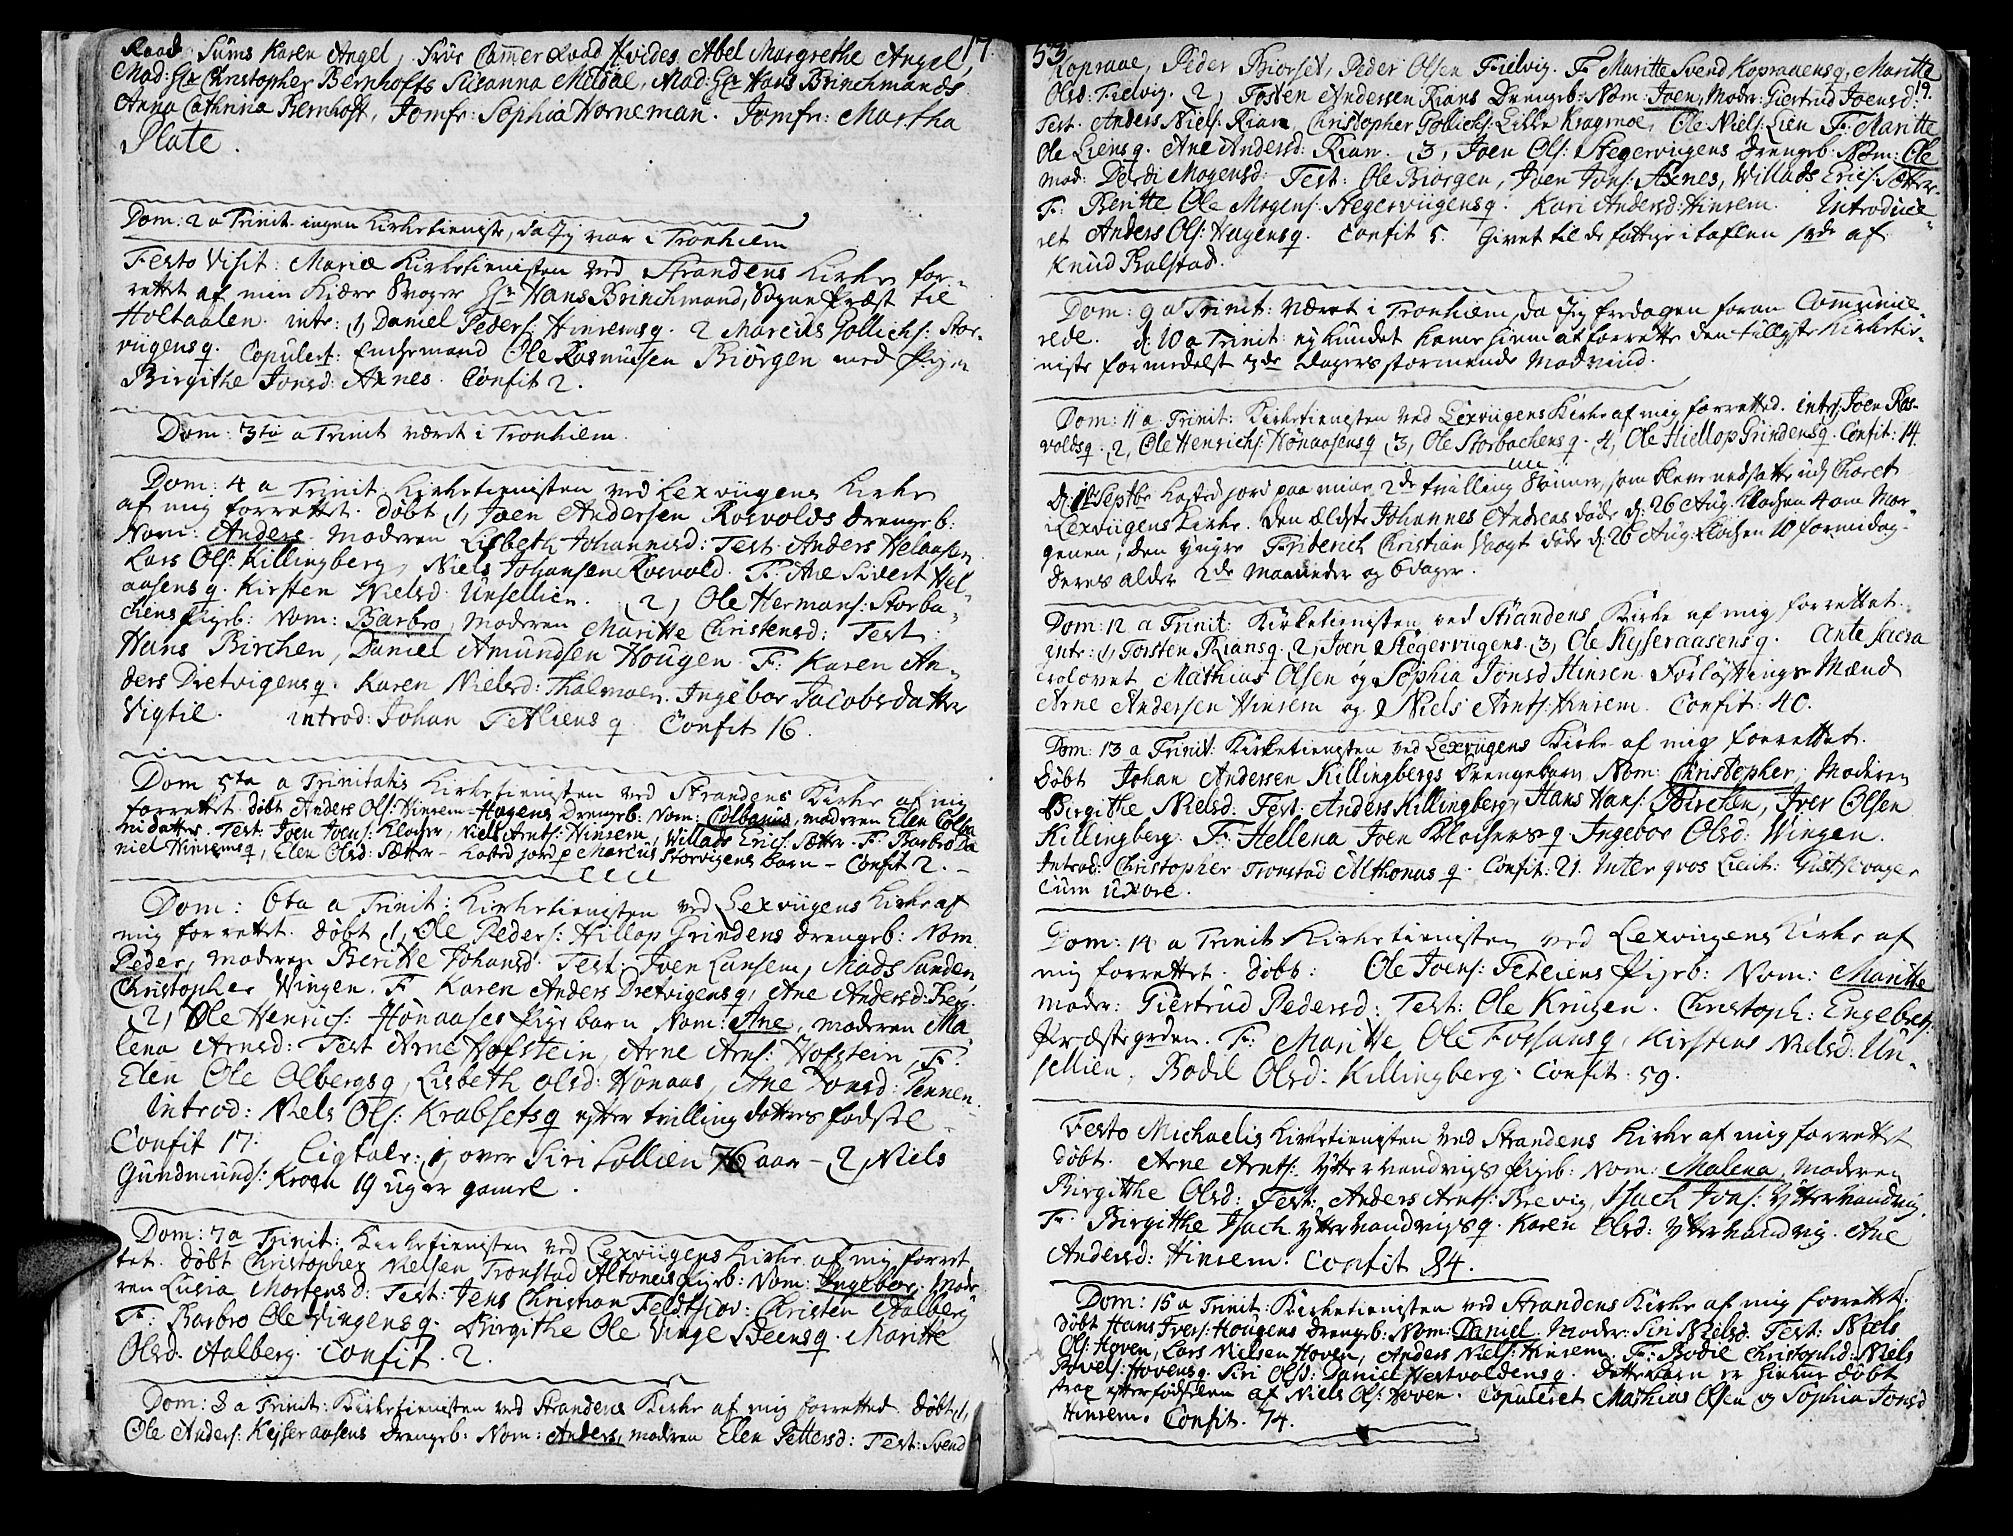 Raad Sums Karen Angel, Frue Cammer Raad Hvides Abel Margrethe Angel, 17
Mad: Hr Christopher Bernhofts Susanna Meldal, Mad: Hr Hans Brinchmands
Anna Cathrina Bernhoft, Jomfr: Sophia Horneman. Jomfr: Martha
Plate.
Dom: 2 a Trinit. ingen Kirketieniste, da Jeg var i Tronhiem
Festo Visit: Mariæ Kirketienisten ved Strandens Kirke for-
rettet af min Kiære Svoger Hr Hans Brinchmand, Sogne Præst til
Holtaalen. intr: 1, Daniel Peders: Hinsems q. 2 Marcus Gollichs: Stor-
vugens q. Copuleret: Enchemand Ole Rasmussen Biörgen med Pigen
Birgithe Jonsd: Axnes. Confit 2.
Dom: 3tia a Trinit været i Tronhiem.
Dom: 4 a Trinit. Kirketienisten ved Lexviigens Kirke
af mig forrettet. döbt 1, Joen Andersen Rosvolds drengeb:
Nom: Anders. Moderen Lisbeth Johannisd: Test. Anders Helaasen
Lars Ols: Killingberg, Niels Johansen Rosvold. F: Ane Sivert Hel-
aasens q. Kirsten Nielsd: Unsellien. 2, Ole Hermans: Storba-
chens Pigeb: Nom: Barbro, Moderen Maritte Christensd: Test:
Hans Birchen, Daniel Amundsen Hougen. F: Karen An-
ders Dretvigens q. Karen Nielsd: Thalmoen. Ingebor Jacobsdatter
Vigtil. introd: Johan Tetliens q. Confit 16.
Dom 5ta a Trinitatis Kirketienisten ved Strandens Kirke af mig
forrettet döbt Anders Ols: Hinsem-Hagens Drengeb: Nom: Colbanus, moderen Elen Colba-
nidatter. Test: Joen Joens: Klocher, Niels Arnts: Hinsem, Willads Erics: Sætter. F: Barbro Da-
niel Hinsems q, Elen Olsd: Sætter - Kasted jord p Marcus Storvigens barn - Confit 2. -
Dom: 6ta a Trinit: Kirketienisten ved Lexviigens Kirke af
mig forrettet. döbt 1, Ole Peders: Hillop Grindens drengeb: Nom
Peder, moderen Beritte Johansd: Test: Joen Lansem, Mads Sanden,
Christopher Wingen. F Karen Anders Dretvigens q, Ane Andersd: Berg.
2, Ole Henrics: Hönaases Pige barn Nom: Ane, moderen Ma-
lena Arnsd: Test Arne Hofstein, Arne Arns: Hofstein, F:
Elen Ole Olbergs q, Lisbeth Olsd: Hönaas, Ane Jonsd: Tennen.
Introd: Niels Ols: Krabsets q efter trilling dotters fodsel -
Confit 17: Ligtale: 1, over Siri Lollien 76 aar - 2 Niels
Gundmunds: Kroen 19 uger gamel.
Dom: 7a Trinit: Kirketienisten ved Lexviigens Kirke af mig forret
tet. döbt Christopher Nielsen Tronstad Altones Pigeb: Nom: Ingebor, Mode-
ren Lusia Mortensd: Test: Jens Christian Feldtskov: Christen Aalberg
F: Barbro Ole Vingens q. Birgithe Ole Vinge Beens q. Maritte
Olsd: Aalberg. Confit. 2.
Dom: 8 a Trinit: Kirketienisten ved Strandens Kirke af mig forretted. döbt 1,
Ole Anders: Keiseraasens drengeb: Nom: Anders, modren Elen Pettersd: Test: Svend
53
Kopraae, Peder Biorset, Peder Olsen Fielvig. F Maritte Svend Kopraaens q, Maritte
Olsd: Fielvig. 2, Tosten Andersen Rians Drengeb: Nom: Joen, Moder: Giertrud Joensd: 19.
Test. Anders Niels: Rian, Christopher Gollichs: Lille Kragmoe, Ole Niels: Lien F: Maritte
Ole Liens q. Ane Andersd: Rian. 3, Joen Ols: Stegervigens drengeb: Nom: Ole
mod: Dordi Mogensd: Test: Ole Biorgen, Joen Jons: Axnes, Willads Erics: Sætter.
F: Beritte Ole Mogens: Stegervigens q. Kari Andersd: Hinsem. Introduce-
ret Anders Ols: Hagens q. Confit 5. Givet til de fattige i taflen 1 rdr af
Knud Ralstad.
Dom: 9 a Trinit: Været i Tronhiem, da Jeg fredagen foran Communice-
rede. d: 10 a Trinit. ej kundet kome hiem at forrette den tillyste Kirketie-
niste formedelst 3de dagers stormende Modvind.
Dom: 11 a Trinit: Kirketienisten ved Lexviigens Kirke af mig forretted. intr: Joen Ros-
volds q. 2, Ole Henrichs: Hönaasens q 3, Ole Storbachens q. 4, Ole Hiellop Grindens q. Confit: 14.
d: 1te Septbr kasted jord paa mine 2de tvilling Sönner, som bleve nedsatte udj Choret
i Lexviigens Kirke. Den ældste Johannes Andreas döde d: 26 Aug. Klochen 4 om Mor-
genen, den yngre Friderich Christian Voogt döde d: 26 Aug: Klochen 10 formidag-
Deres alder 2de Maaneder og 6 dager.
Dom: 12 a Trinit: Kirketienisten ved Strandens Kirke af mig forrettet.
Intr: 1, Torsten Rians q. 2, Joen Stegerviigens. 3, Ole Kejseraasens q. Ante sacra
trolovet Mathias Olsen og Sophia Jonsd Hinsen Forlöftnings Mænd
Arne Andersen Hinsem og Niels Arnts: Hinsem. Confit: 40.
Dom: 13 a Trinit: Kirketienisten ved Lexviigens Kirke af mig forrettet.
döbt Johan Andersen Killingbergs Drengebarn Nom: Christopher, Moderen
Birgitte Nielsd: Test: Anders Killingberg, Hans Hans: Birchen, Iver Olsen
Killingberg. F: Hellena Joen Klochers q Ingebor Olsd: Wingen.
Introd: Christopher Tronstad Althonas q. Confit: 21. Inter qvos Lieut:
cum uxore.
Dom: 14 a Trinit Kirketienisten ved Lexviigens Kirke af
mig forrettet. döbt: Ole Joens: Teteiens Pigeb: Nom: Maritte
moder: Giertrud Pedersd: Test: Ole Krugen. Christoph: Engebrets:
Præstegrden. F: Maritte Ole Fossans q, Kirstens Nielsd: Un-
sellien, Bodil Olsd: Killingberg. Confit. 59.
Festo Michaelis Kirketienisten ved Strandens Kirke af mig forrettet
döbt. Arne Arnts: Ytterhandvigs Pigeb: Nom: Malena, Moderen
Birgithe Olsd: Test: Anders Arnts: Brevig, Isach Jons: Ytterhandvig.
F: Birgithe Isach Ytterhandvigs q. Karen Olsd: Ytterhandvig. Ane
Andersd: Hinsem. Confit 84.
Dom: 15 a Trinit: Kirketienisten ved Strandens Kirke af mig forrettet.
döbt Hans Ivers: Hougens drengeb: Nom: Daniel. Moder: Siri Nielsd. Test: Niels
Ols: Hoven, Lars Nielsen Hoven, Anders Niels: Hinsem. F: Bodil Christophd: Niels
Povels: Hovens q. Siri Olsd: Daniel Hestvoldens q. Dette barn er hieme döbt
strax efter födselen af Niels Ols: Hoven. Copuleret Mathias Olsen og Sophia Jonsd
Hinsem. Confit. 74.